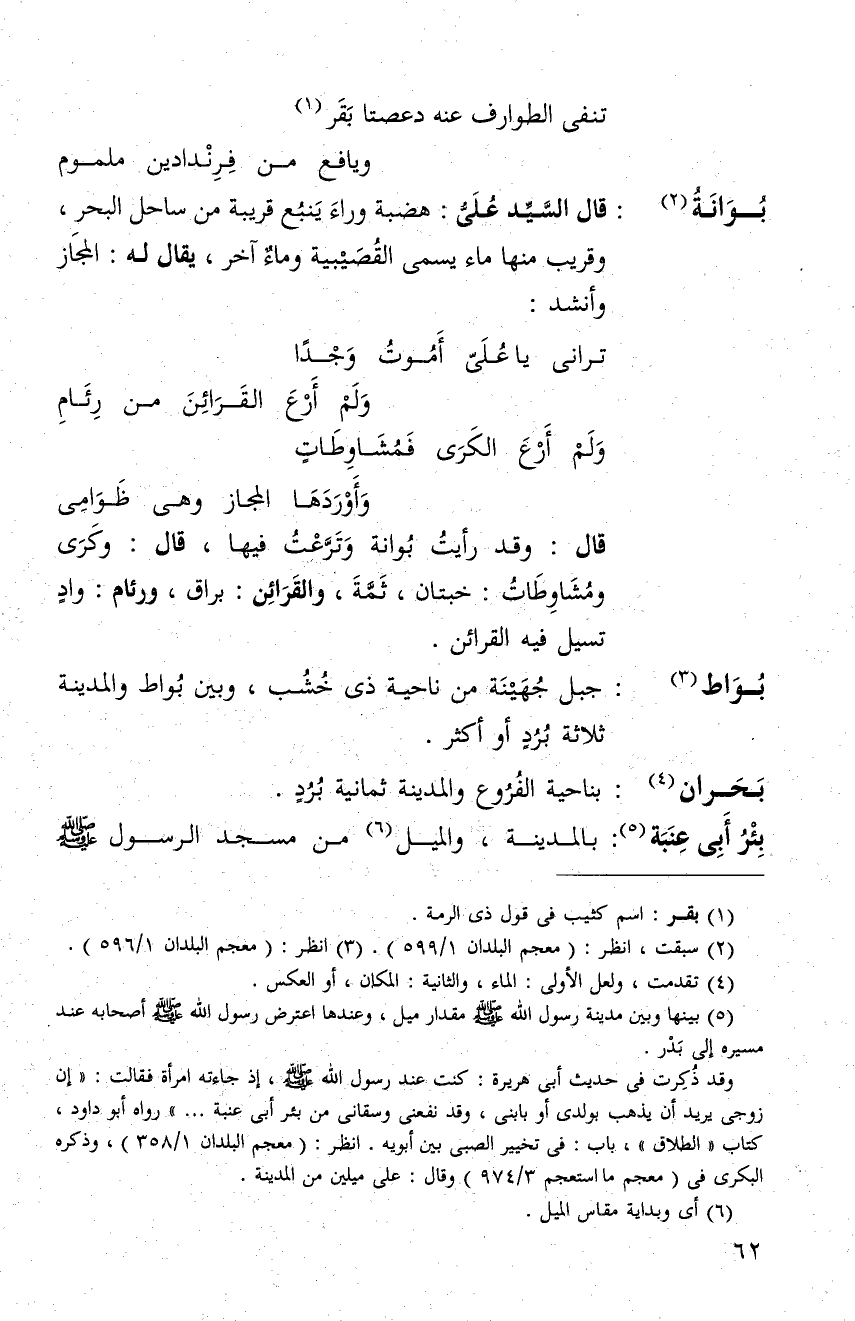 تنفى الطوارف عنه دعصتا بَقَر (١)
ويافع مــن فِرِنْدادين ملمــوم
بُــوَانَةُ (٢) : قال السَّيِّد عُلَىُّ : هضبة وراءَ يَنبُع قريبة من ساحل البحر ،
وقريب منها ماء يسمى القُصَيْبية وماءٌ آخر ، يقال لـه : المجَاز
وأنشد :
تـرانى يا عُـلَىّ أَمُـوتُ وَجْـدًا
وَلَمْ أَرْعَ القَـرَائِنَ مـن رِئَـامِ
وَلَمْ أَرْعَ الكَرَى فَمُشَـاوِطَـاتٍ
وَأَوْرَدَهَـا المجَـاز وهـى ظَـوَامِى
قال : وقـد رأيتُ بُوانة وَتَرَّعْتُ فيهـا ، قال : وكَرَى
ومُشَاوِطَاتُ : خبتـان ، ثَمَّةَ ، والقَرَائِن : براق ، ورئام : وادٍ
تسيل فيه القرائن .
بُــوَاط (٣) : جبل جُهَيْنَة من ناحيـة ذى خُشُـب ، وبين بُواط والمدينـة
ثلاثة بُرُدٍ أو أكثر .
بَـحَـران (٤) : بناحية الفُرُوع والمدينة ثمانية بُرُدٍ .
بِئْرُ أَبِى عِنَبَة (٥) : بـالمـدينـــة ، والميـــل (٦) مـن مســجـد الـرســـول ﷺ
(١) بقـر : اسم كثيب فى قول ذى الرمة .
(٢) سبقت ، انظر : ( معجم البلدان ٥٩٩/١ ) . (٣) انظر : ( معجم البلدان ٥٩٦/١ ) .
(٤) تقدمت ، ولعل الأولى : الماء ، والثانية : المكان ، أو العكس .
(٥) بينها وبين مدينة رسول الله ﷺ مقدار ميل ، وعندها اعترض رسول الله ﷺ أصحابه عنـد
مسيره إلى بَدْر .
وقد ذُكِرت فى حديث أبى هريرة : كنت عند رسول الله ﷺ ، إذ جاءته امرأة فقالت : « إن
زوجى يريد أن يذهب بولدى أو بابنى ، وقد نفعنى وسقانى من بئر أبى عنبة ... » رواه أبو داود ،
كتاب « الطلاق » ، باب : فى تخيير الصبى بين أبويه . انظر : ( معجم البلدان ٣٥٨/١ ) ، وذكره
البكرى فى ( معجم ما استعجم ٩٧٤/٣ ) وقال : على ميلين من المدينة .
(٦) أى وبداية مقاس الميل .
٦٢